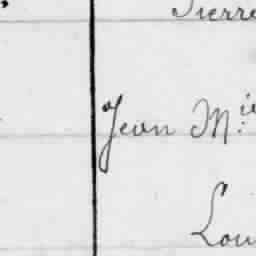 Pierre
Jean M.ie
Lou